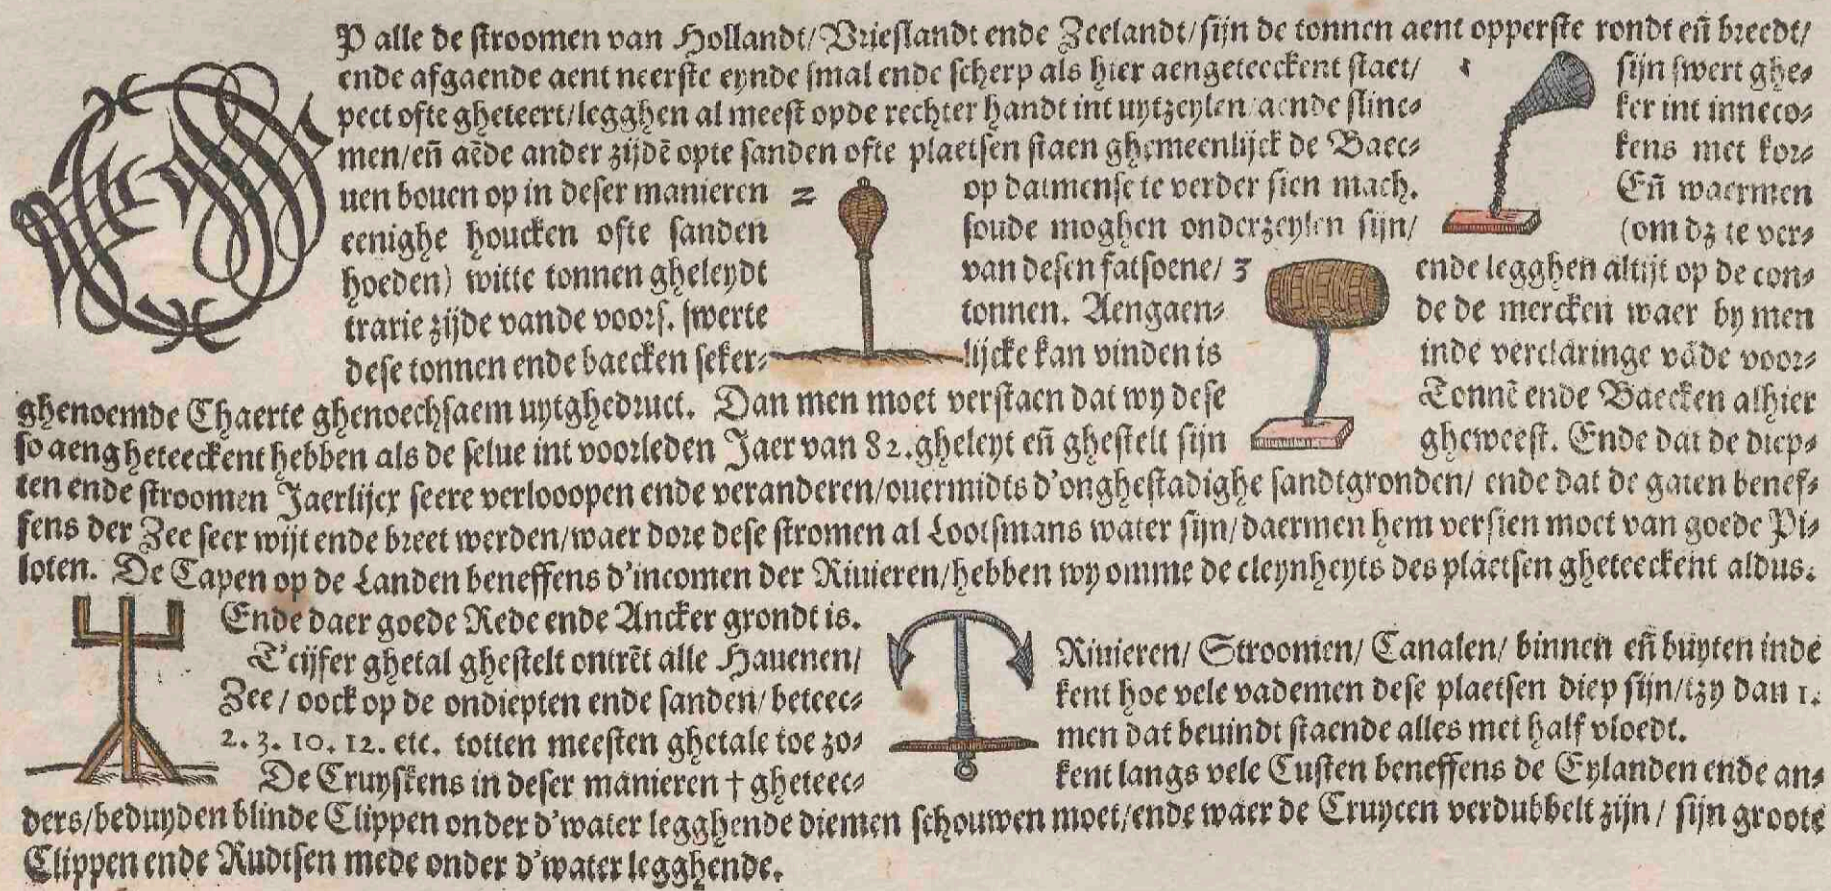 OP alle de stroomen van Hollandt/ Vrieslandt ende Zeelandt/ sijn de tonnen aent opperste rondt eñ breedt/
ende afgaende aent neerste eynde smal ende scherp als hier aengeteeckent staet/ 1 sijn swert ghe=
pect ofte gheteert/legghen al meest opde rechter handt int uytzeylen/aende slinc= ker int inneco=
men/eñ aẽde ander zijdẽ opte sanden ofte plaetsen staen ghemeenlijck de Baec= kens met kor=
uen bouen op in deser manieren 2 op datmense te verder sien mach. Eñ waermen
eenighe houcken ofte sanden soude moghen onderzeylen sijn/ (om dz te ver=
hoeden) witte tonnen gheleydt van desen fatsoene/ 3 ende legghen altijt op de con=
trarie zijde vande voors. swerte tonnen. Aengaen= de de mercken waer by men
dese tonnen ende baecken seker= lijcke kan vinden is inde verclaringe vãde voor=
ghenoemde Chaerte ghenoechsaem uytghedruct. Dan men moet verstaen dat wy dese Tonnẽ ende Baecken alhier
so aengheteeckent hebben als de selue int voorleden Jaer van 82. gheleyt eñ ghestelt sijn gheweest. Ende dat de diep=
ten ende stroomen Jaerlijcx seere verlooopen ende veranderen/ouermidts d'onghestadighe sandtgronden/ ende dat de gaten benef=
fens der Zee seer wijt ende breet werden/waer dore dese stromen al Lootsmans water sijn/daermen hem versien moet van goede Pi=
loten. De Capen op de Landen beneffens d'incomen der Riuieren/hebben wy omme de cleynheyts des plaetsen gheteeckent aldus.
Ende daer goede Rede ende Ancker grondt is.
T'cijfer ghetal ghestelt ontrẽt alle Hauenen/ Riuieren/ Stroomen/ Canalen/ binnen eñ buyten inde
Zee/ oock op de ondiepten ende sanden/ beteec= kent hoe vele vademen dese plaetsen diep sijn/tzy dan 1.
2. 3. 10. 12. etc. totten meesten ghetale toe zo= men dat beuindt staende alles met half vloedt.
De Cruyskens in deser manieren † gheteec= kent langs vele Custen beneffens de Eylanden ende an=
ders/beduyden blinde Clippen onder d'water legghende diemen schouwen moet/ende waer de Cruycen verdubbelt zijn/ sijn groote
Clippen ende Rudtsen mede onder d'water legghende.